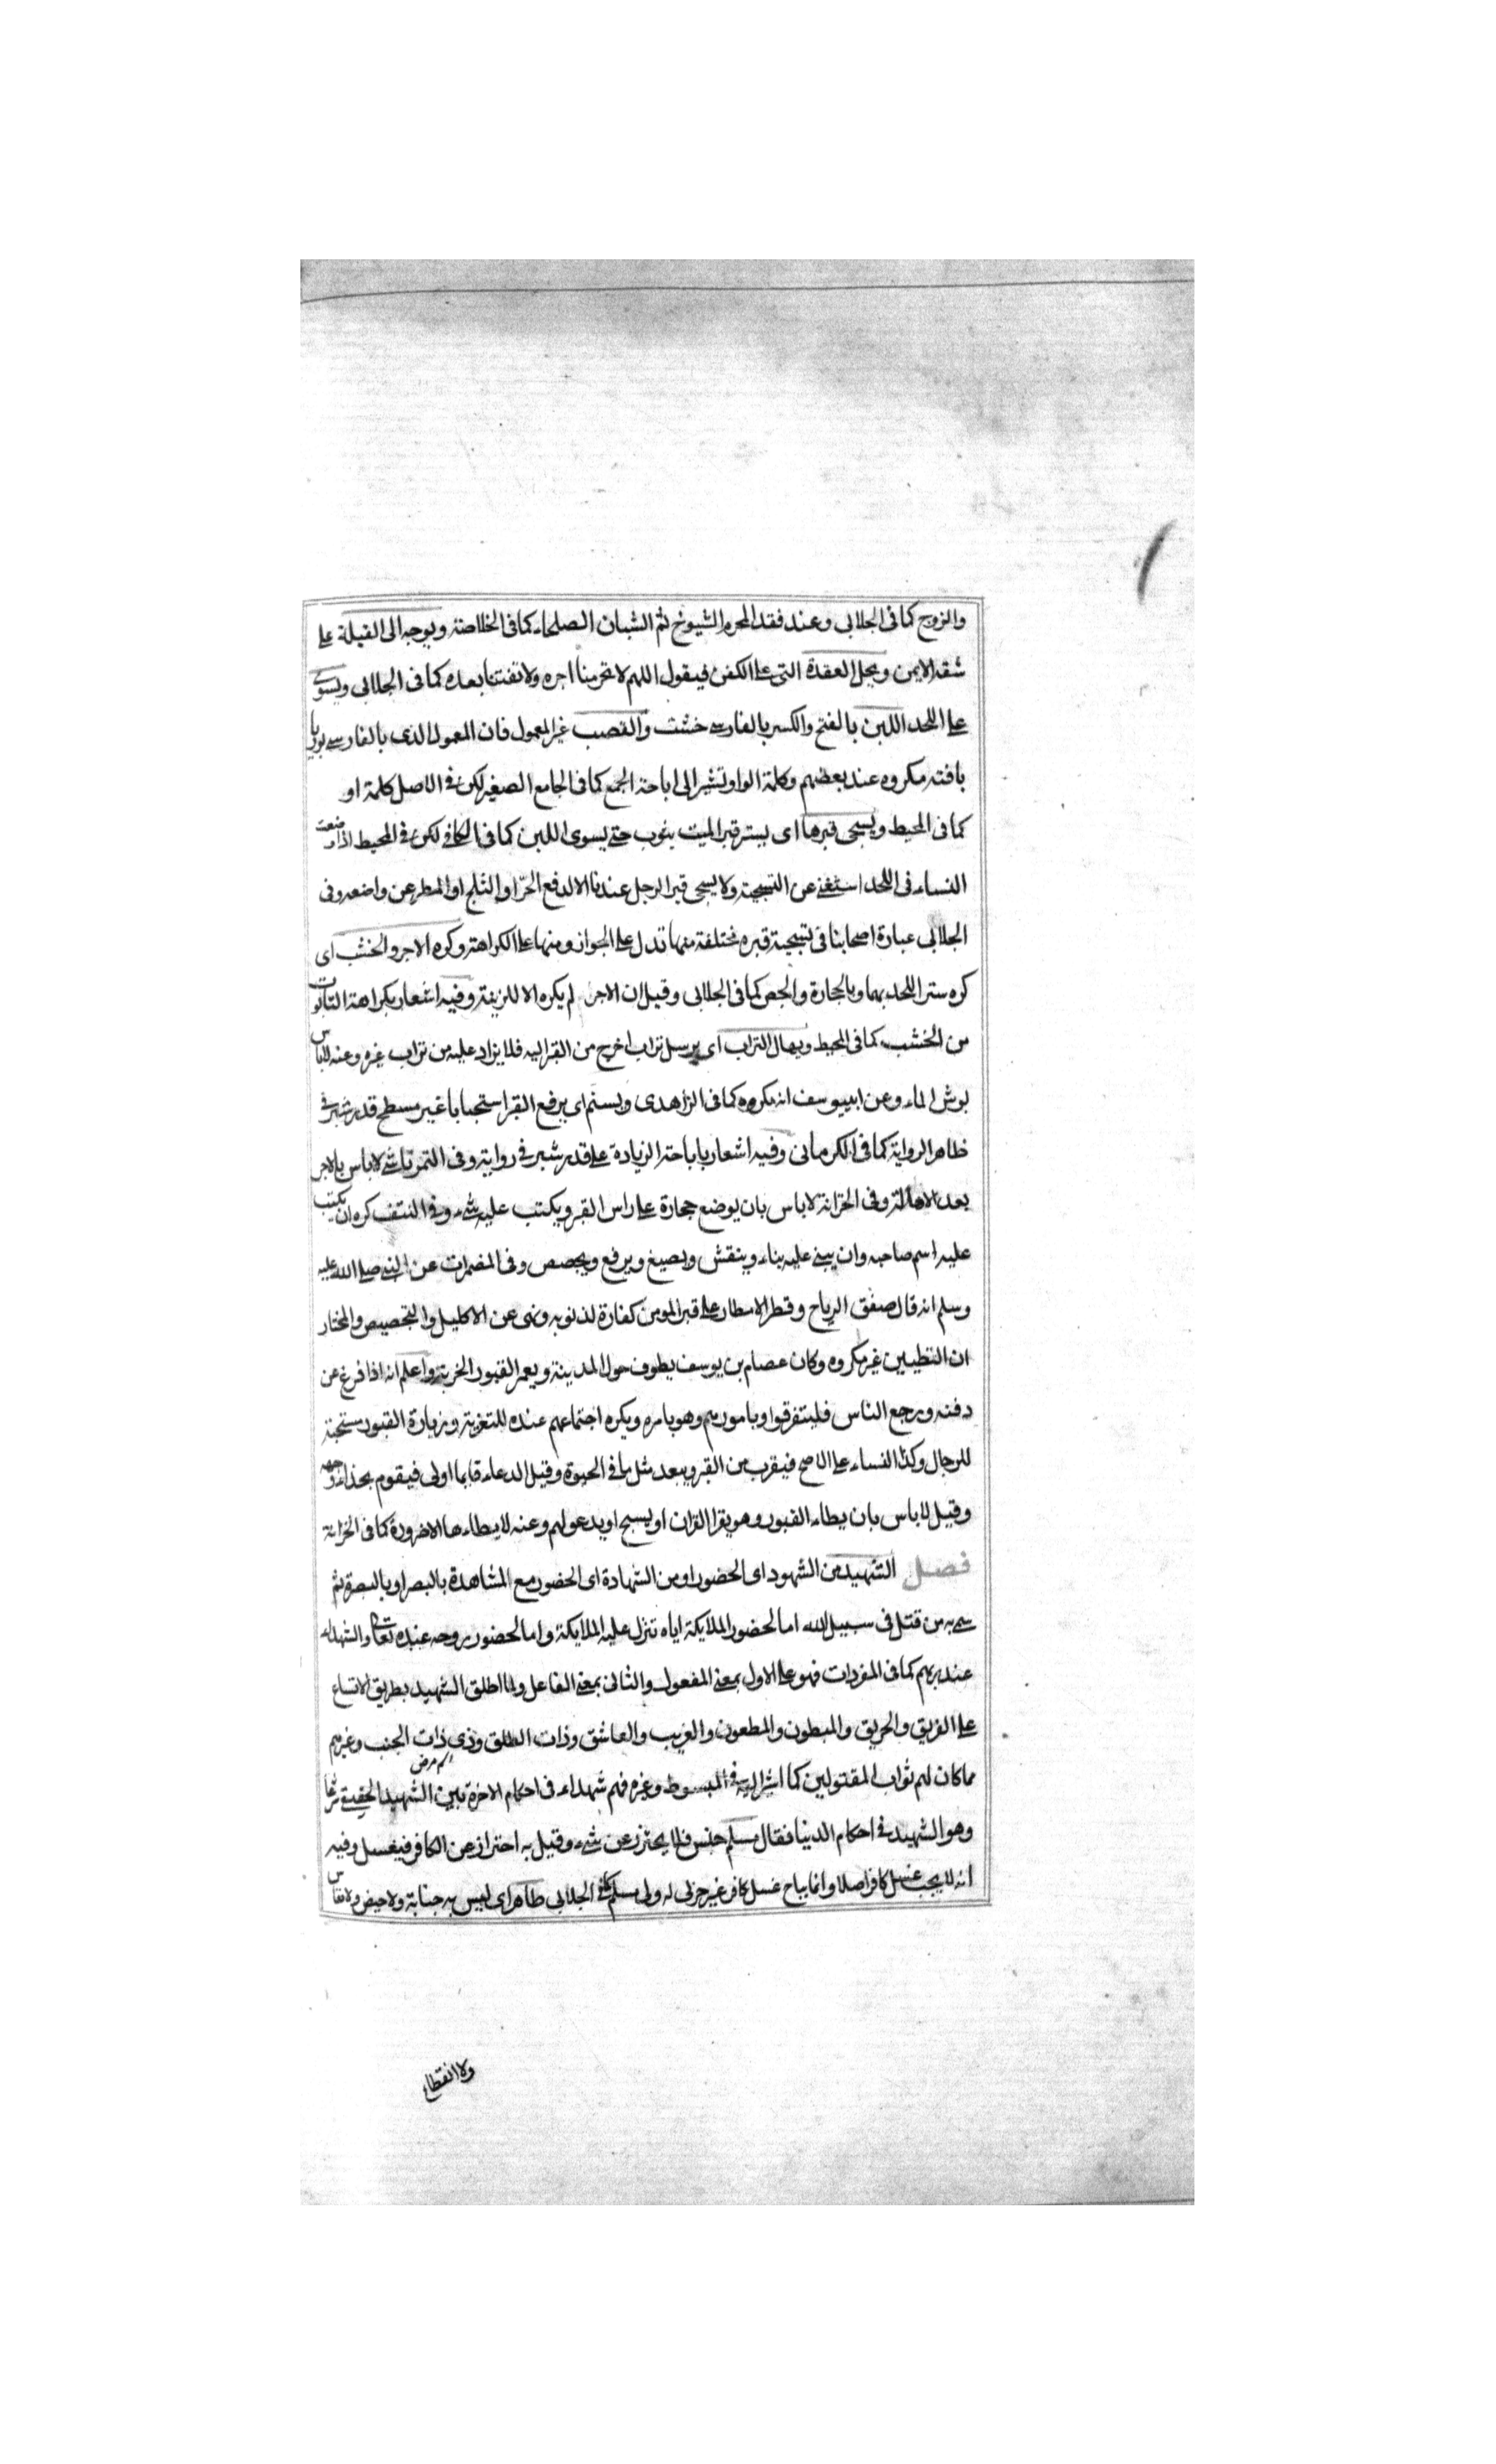 والزوج كما فى الجلابى وعند فقد المحرم الشيوخ ثم الشبان الصلحاء كما فى الخلاصة ويوجه الى القبلة على
شقه الايمن ويحل العقدة التى على الكفن فيقول اللهم لا تحرمنا اجره ولا تفتنا بعده كما فى الجلابى ويسوى
على اللحد اللبن بالفتح والكسر بالفارسى خشت والقصب غير المعمول فان المعمول الذى بالفارسى بوريا
بافته مكروه عند بعضهم وكلمة الواو تشير الى اباحة الجمع كما فى الجامع الصغير لكن فى الاصل كلمة او
كما فى المحيط ويسجى قبرها اى يستر قبر الميت بثوب حتى يسوى اللبن كما فى الكافى لكن فى المحيط اذا وضعت
النساء فى اللحد استغنى عن التسجية ولا يسجى قبر الرجل عندنا الا لدفع الحرّ او الثلج او المطر عن واضعه وفى
الجلابى عبارة اصحابنا فى تسجية قبره مختلفة منها تدل على الجواز ومنها على الكراهة وكره الاجر والخشب اى
كره ستر اللحد بهما وبالحجارة والجص كما فى الجلابى وقيل ان الاجر لم يكره الا للزينة وفيه اشعار بكراهة التابوت
من الخشب كما فى المحيط ويهال التراب اى يرسل تراب اخرج من القبر اليه فلا يزاد عليه من تراب غيره وعنه لاباس
برش الماء وعن ابييوسف انه مكروه كما فى الزاهدى ويسنم اى يرفع القبر استحبابا غير مسطح قدر شبر فى
ظاهر الرواية كما فى الكرمانى وفيه اشعار باباحة الزيادة على قدر شبر فى رواية وفى التمرتاشى لا باس بالاجر
بعد الاهالة وفى الخزانة لا باس بان يوضع حجارة على راس القبر ويكتب عليه شىء وفى النتف كره ان يكتب
عليه اسم صاحبه وان يبنى عليه بناء وينقش ويصبغ ويرفع ويجصص وفى المضمرات عن النبى صلى الله عليه
وسلم انه قال صفق الرياح وقطر الامطار على قبر المومن كفارة لذنوبه ونهى عن الاكليل والتجصيص والمختار
ان التطيين غير مكروه وكان عصام بن يوسف يطوف حول المدينة ويعمر القبور الخربة واعلم انه اذا فرغ من
دفنه ورجع الناس فليتفرقوا وبامورهم وهو بامره ويكره اجتماعهم عنده للتعزية وزيارة القبور مستحبة
للرجال وكذا النساء على الاصح فيقرب من القبر ويبعد مثل ما فى الحيوة وقيل الدعاء قايما اولى فيقوم بحذاء وجهه
وقيل لا باس بان يطاء القبور وهو يقرا القران او يسبح او يدعو لهم وعنه لا يطاءها الا ضرورة كما فى الخزانة
فصل الشهيد من الشهود اى الحضور او من الشهادة اى الحضور مع المشاهدة بالبصر او بالبصرة ثم
سمى به من قتل فى سبيل الله اما لحضور الملايكة اياه تنزل عليه الملايكة واما لحضور روحه عنده تعالى والشهداء
عند ربهم كما فى المفردات فهو على الاول بمعنى المفعول والثانى بمعنى الفاعل ولما اطلق الشهيد بطريق الاتساع
على الغريق والحريق والمبطون والمطعون والغريب والعاشق وذات الطلق وذى ذات الجنب وغيرهم
اسم مرض
مما كان لهم ثواب المقتولين كما اشير اليه فى المبسوط وغيره فهم شهداء فى احكام الاخرة بين الشهيد الحقيقى شرعا
وهو الشهيد فى احكام الدنيا فقال مسلم جنس فلا يحترز عن شىء وقيل به احتراز عن الكافر فيغسل وفيه
انه لا يجب غسل كافر اصلا وانما يباح غسل كافر غير حربى له ولى مسلم كما فى الجلابى طاهر اى ليس به جنابة ولا حيض ولا نفاس
ولا انقطاع